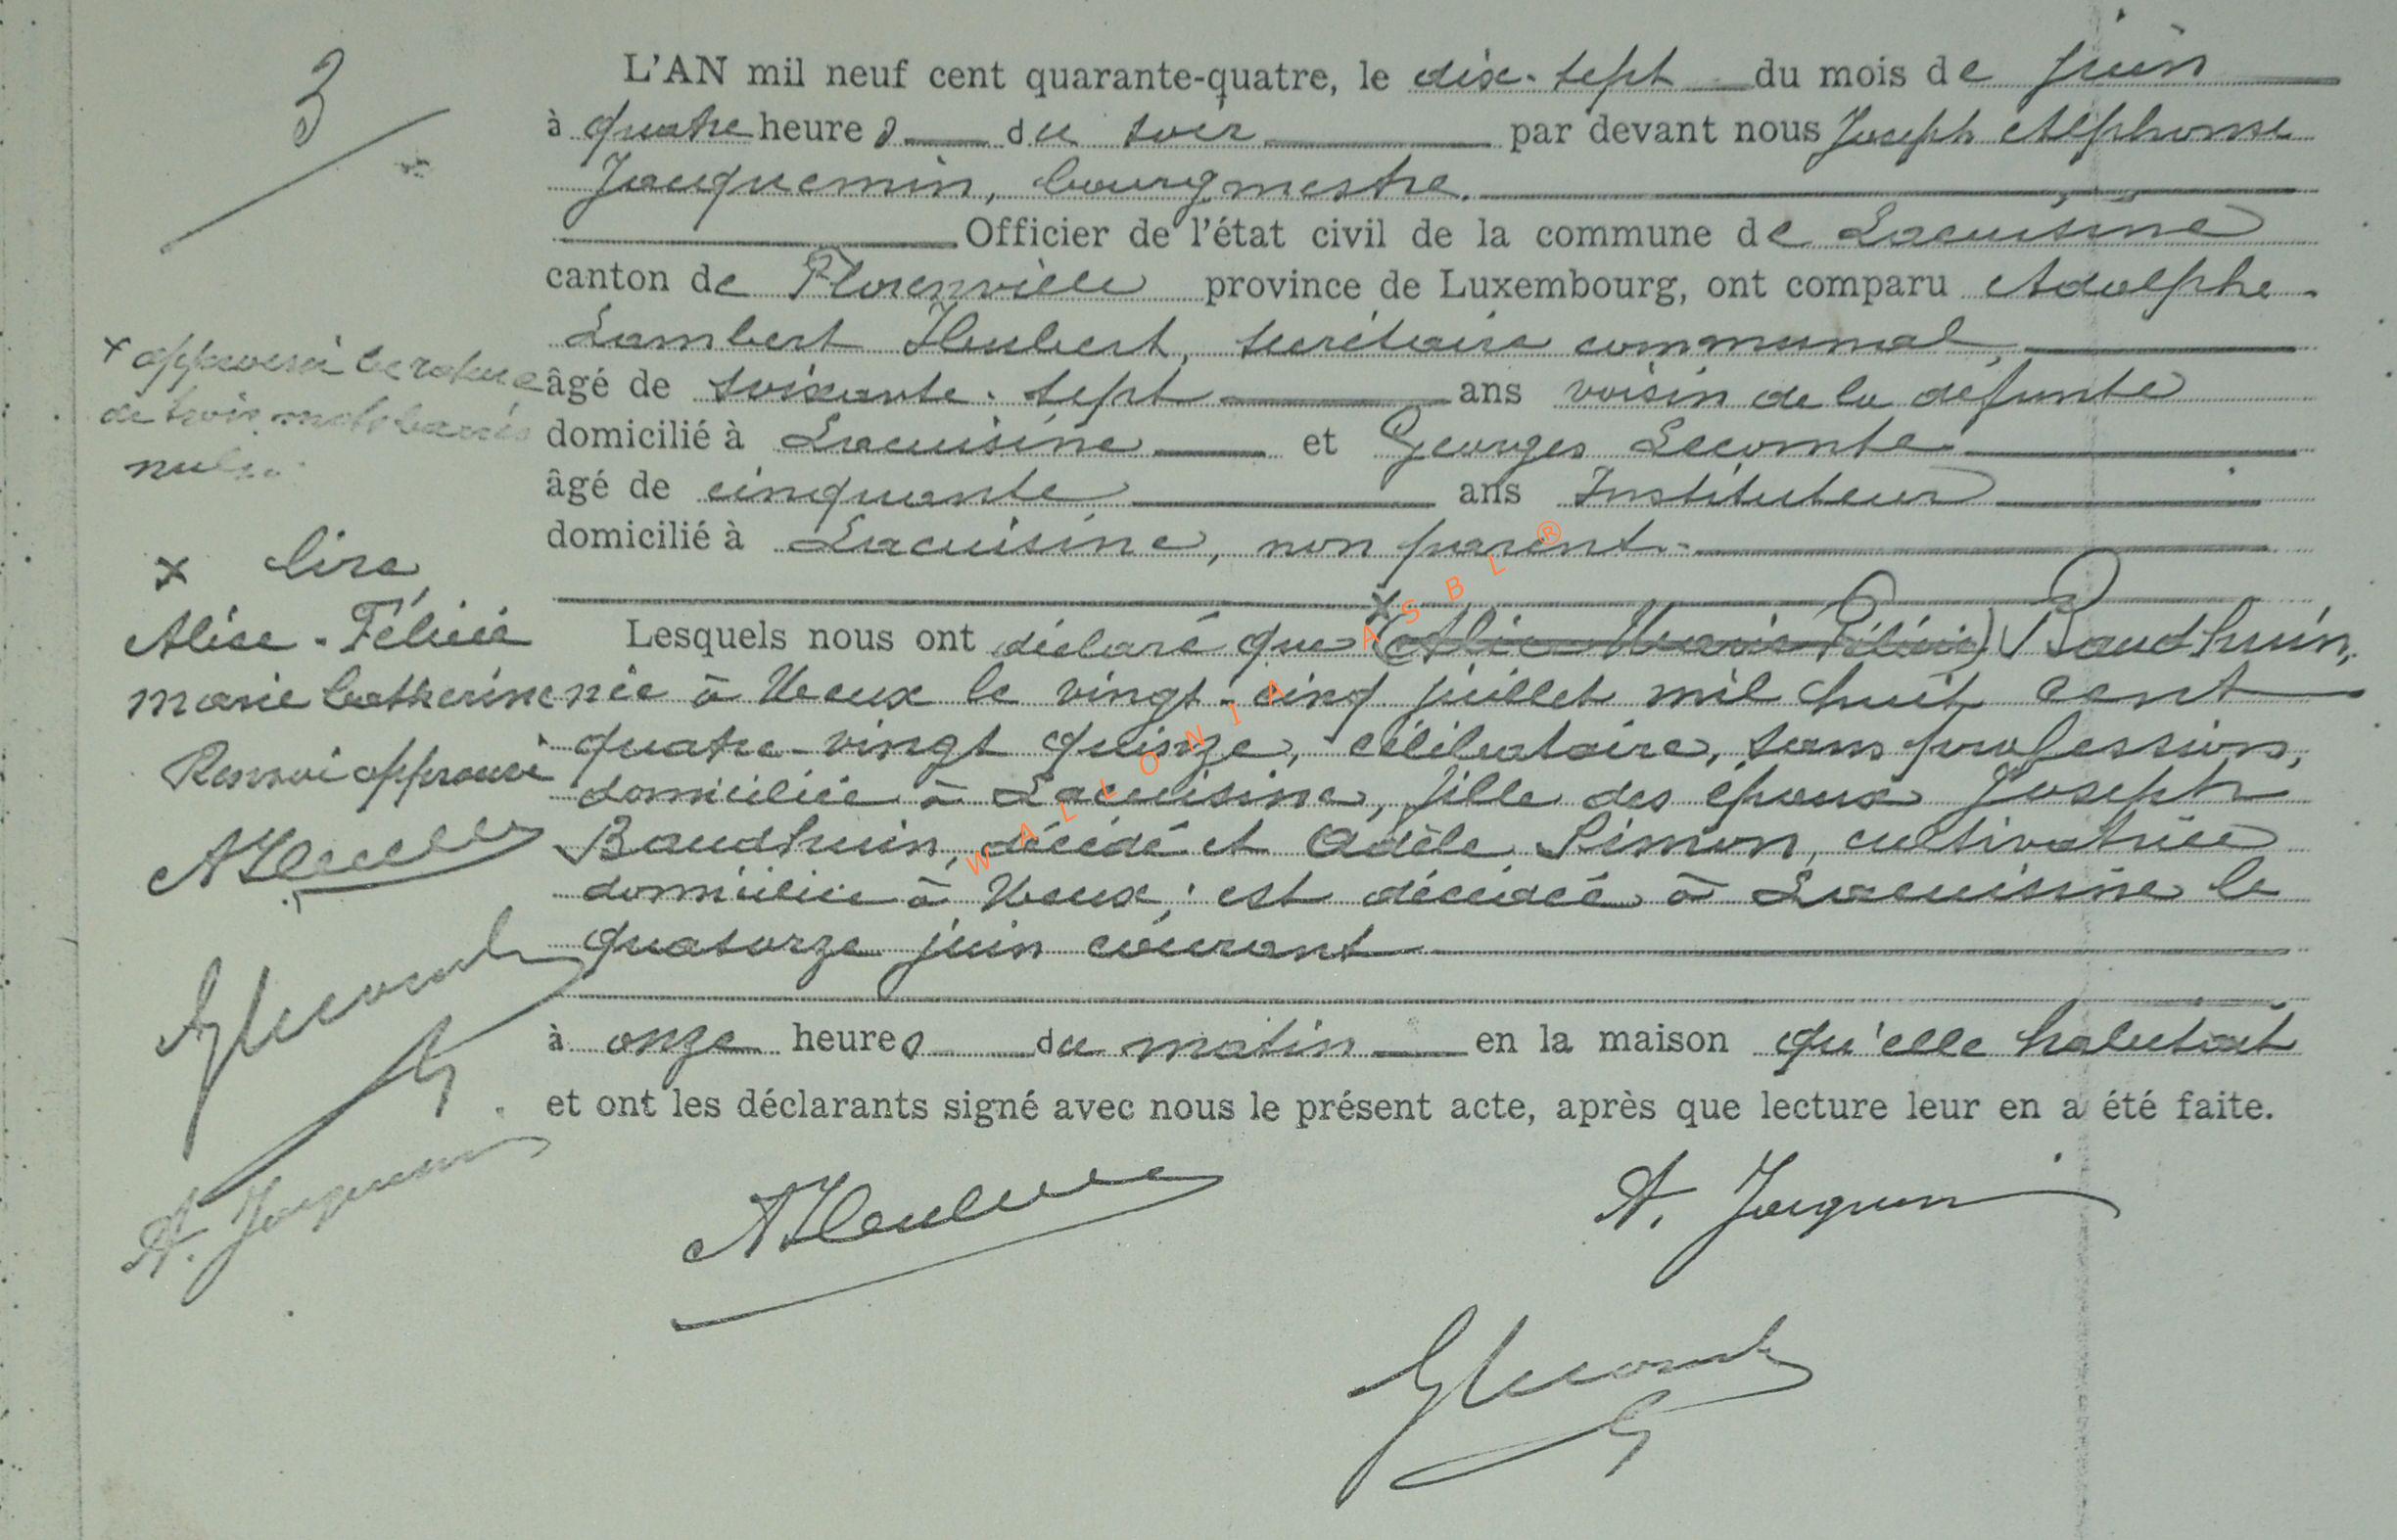 3
L'AN mil neuf cent quarante-quatre, le dix-sept du mois de juin
à quatre heures du soir par devant nous Joseph Alphonse
Jacquemin, bourgmestre.
Officier de l'état civil de la commune de Lacuisine
canton de Florenville province de Luxembourg, ont comparu Adolphe-
Lambert Hubert, secrétaire communal,
âgé de soixante-sept ans voisin de la défunte
domicilié à Lacuisine et Georges Lecomte
âgé de cinquante ans Instituteur
domicilié à Lacuisine, non parent.
x
Lesquels nous ont déclaré que (Alice Marie Félicie) Baudhuin,
née à Meux le vingt-cinq juillet mil huit cent
quatre-vingt quinze, célibataire, sans profession,
domiciliée à Lacuisine, fille des époux Joseph
Baudhuin, décédé et Adèle Simon, cultivatrice
domiciliée à Meux; est décédée à Lacuisine le
quatorze juin courant
à onze heures du matin en la maison qu'elle habitait
et ont les déclarants signé avec nous le présent acte, après que lecture leur en a été faite.
A. Jacquemin
GLecomte
x approuvé la rature
de trois mots barrés
nuls.
x lire
Alice-Félicie
Marie Catherine
Renvoi approuvé
GLecomte
A. Jacquemin
WALLONIA ASBL ®